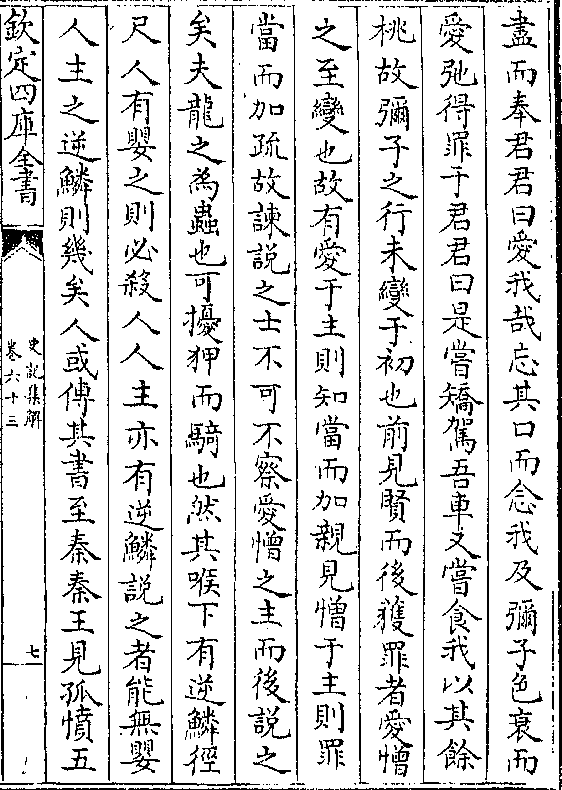 盡而奉君君曰愛我哉忘其口而念我及彌子色衰而
愛弛得罪于君君曰是嘗矯駕吾車又嘗食我以其餘
桃故彌子之行未變于初也前見賢而後獲罪者愛憎
之至變也故有愛于主則知當而加親見憎于主則罪
當而加疏故諫說之士不可不察愛憎之主而後說之
矣夫龍之為蟲也可擾狎而騎也然其喉下有逆鱗徑
尺人有嬰之則必殺人人主亦有逆鱗說之者能無嬰
人主之逆鱗則幾矣人或傳其書至秦秦王見孤憤五
欽定四庫全書
史記集解
卷六十三
七